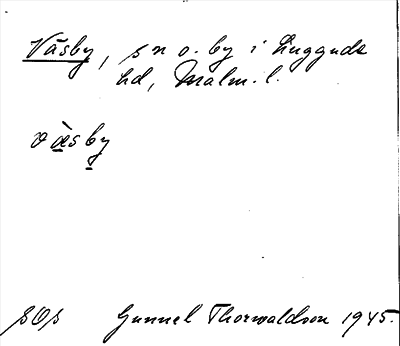 Väsby, sn o. by i Luggude
hd, Malm. l.
v ä̀sby
SOS Gunnel Thorwaldson 1945.